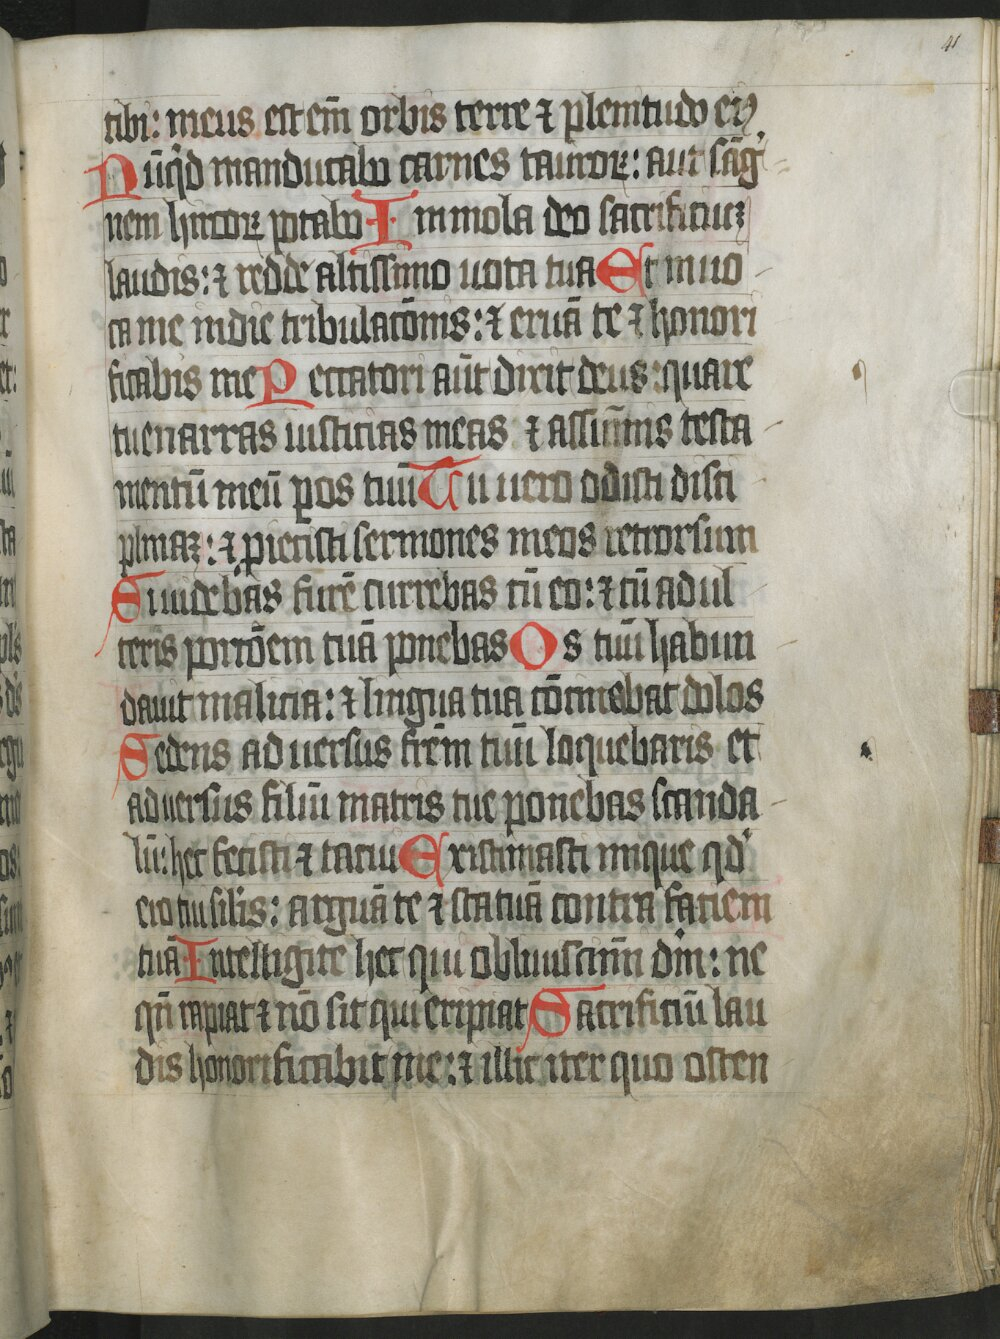 41
tibi: meus est em̄ orbis terre ⁊ plenitudo eiꝰ
Nūqd manducabo carnes tauroꝝ: aut sāg
nem hircoꝝ potabo Immola deo sacrificiuꝫ
laudis: ⁊ redde altissimo uota tua Et inuo
ca me indie tribulacōnis: ⁊ eruā te ⁊ honori
ficabis me Peccatori aūt dixit deus: quare
tu enarras iusticias meas ⁊ assūmis testa
mentū meū ꝑ os tuū Tu uero odisti disci
plinaꝫ: ⁊ ꝓiecisti sermones meos retrorsum
Si uidebas furē currebas cū eo: ⁊ cū adul
teris porcōem tuā ponebas Os tuū habun
dauit malicia: ⁊ lingua tua cōcinebat dolos
Sedens aduersus frēm tuū loquebaris et
aduersus filiū matris tue ponebas scanda
lū: hec fecisti ⁊ tacui Existimasti inique qd'
ero tui sil'is: arguā te ⁊ statuā contra faciem
tuā Intelligite hec qui obliuiscimī dm̄: ne
qn̄ rapiat ⁊ nō sit qui eripiat Sacrificiū lau
dis honorificabit me: ⁊ illic iter quo osten